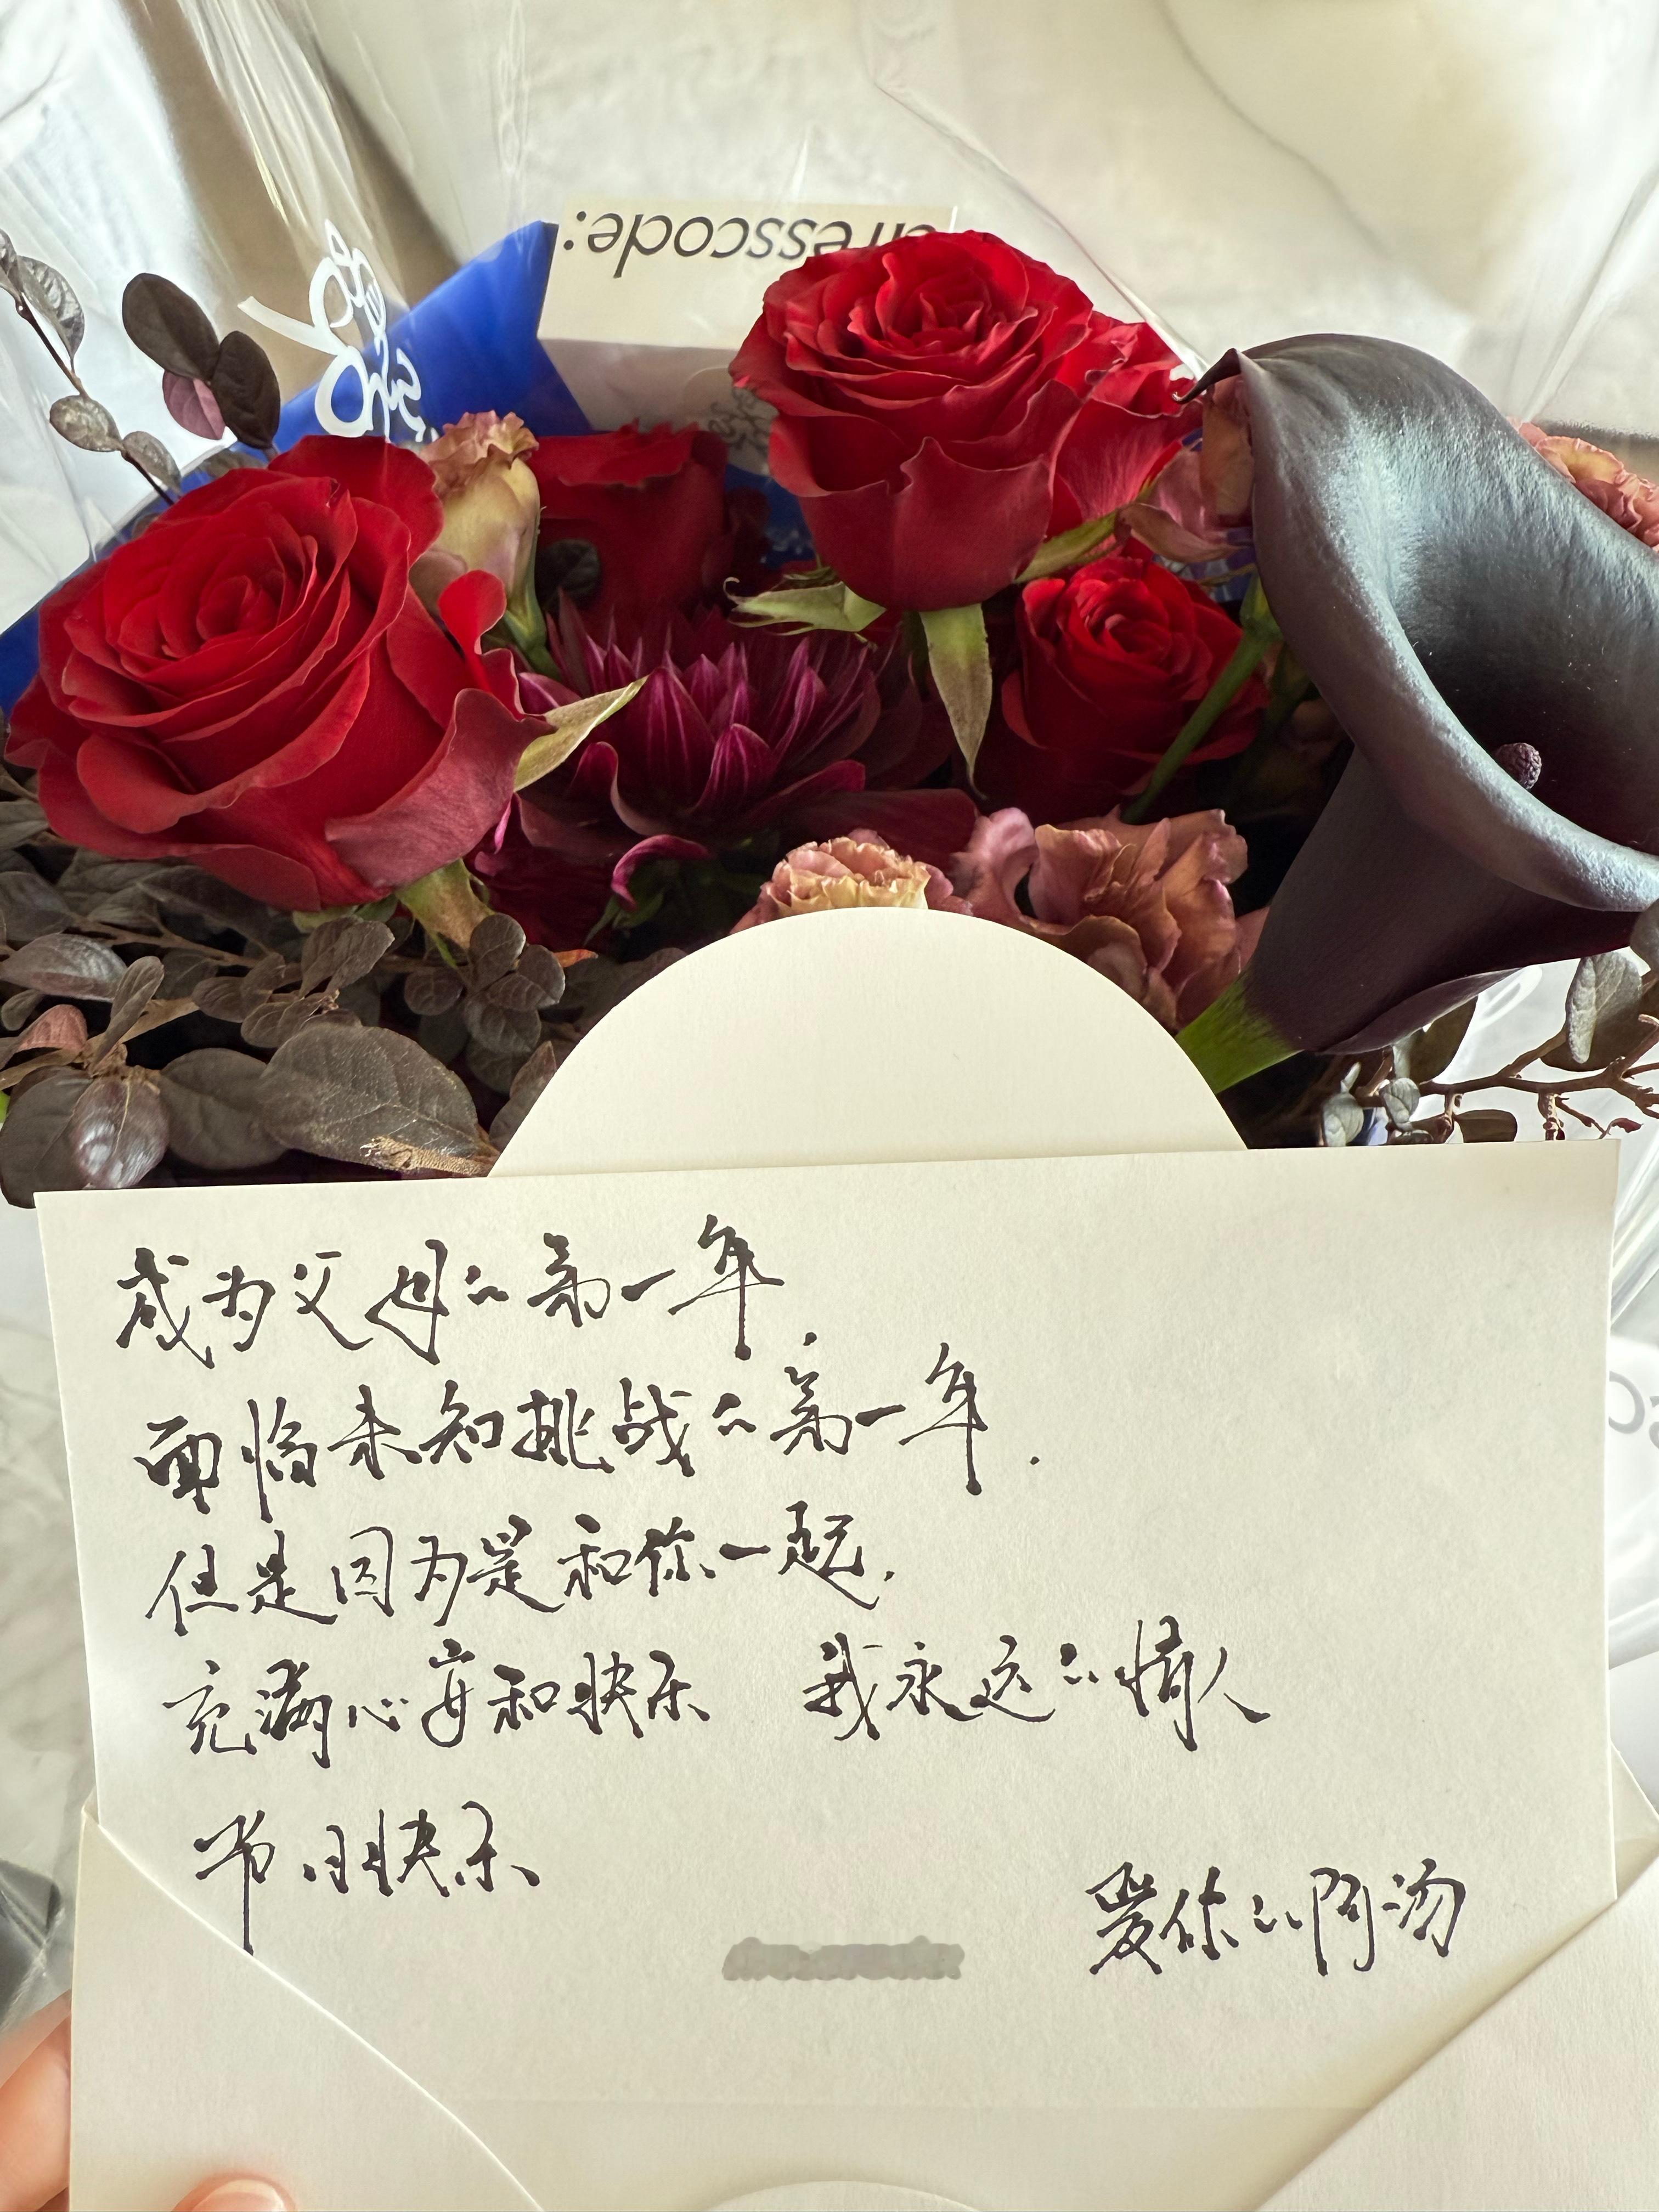 dresscode:
成为父母的第一年
面临未知挑战的第一年.
但是因为是和你一起.
充满心安和快乐 我永远的情人
节日快乐
爱你的阿汤